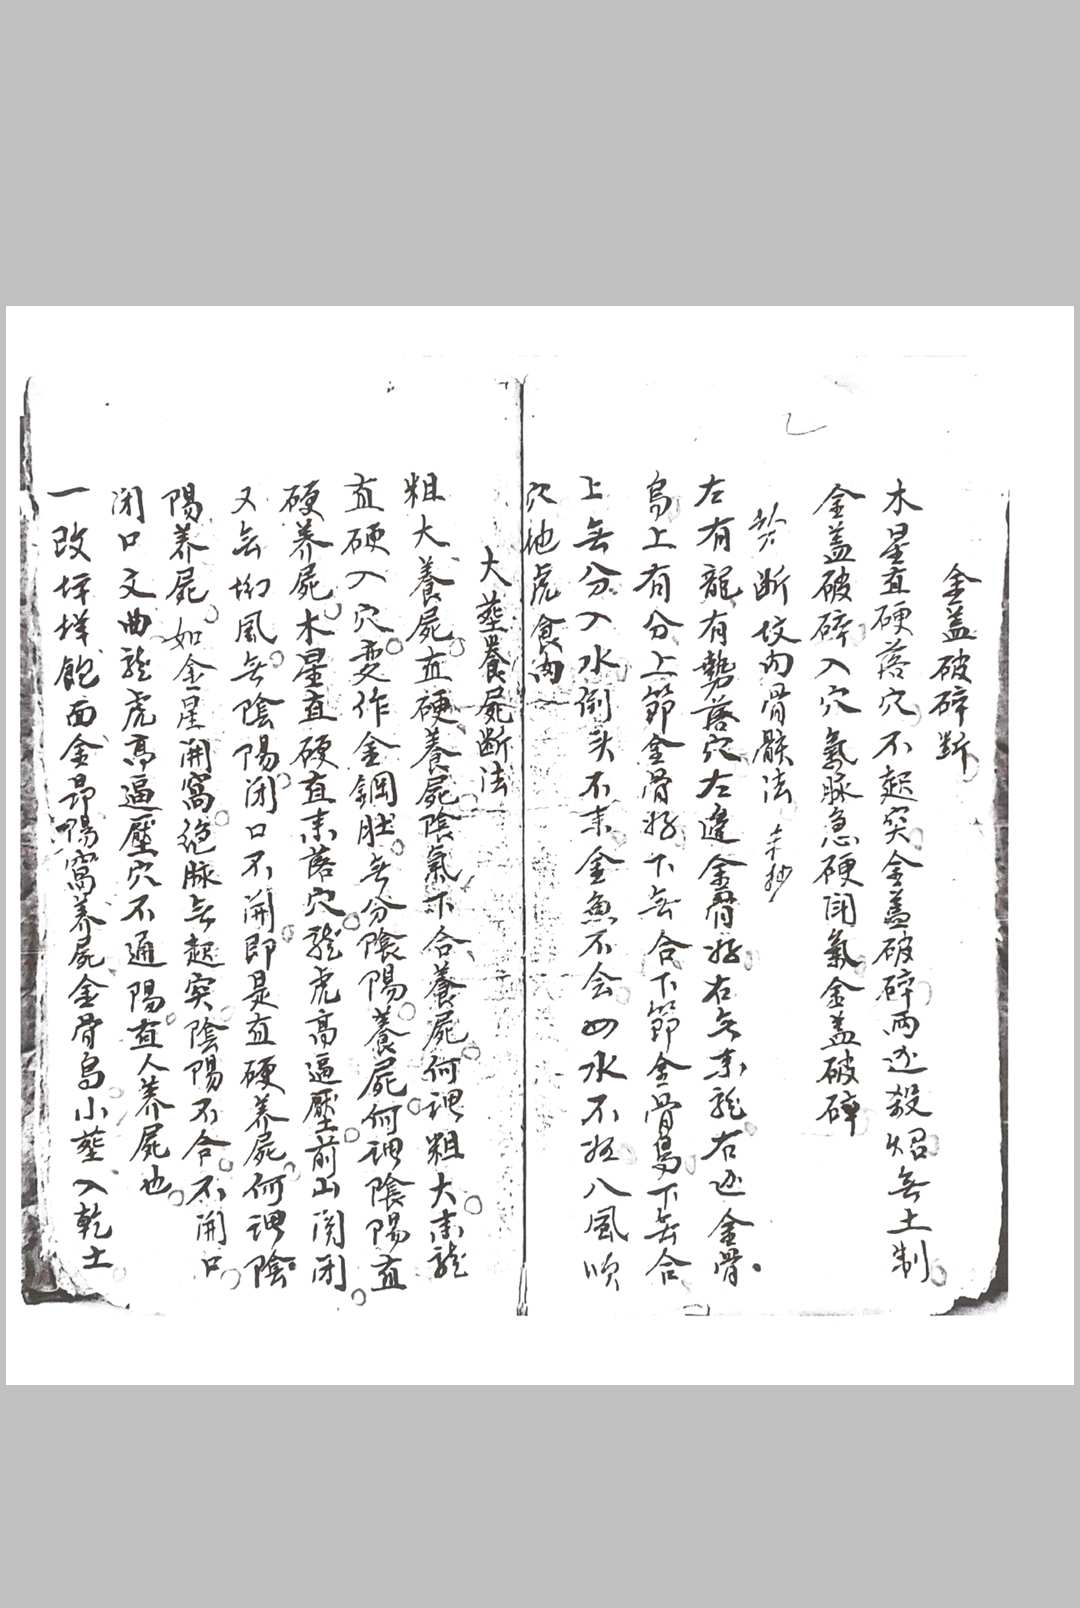 金盖破碎断
木星直硬落穴不起突金盖破碎两边殺焰無土制
金盖破碎入穴氣脉急硬闭氣金盖破碎
断坟内骨骸法 未抄
左有龍有势落穴左邊金骨好右無来龍右边金骨
烏上有分上節金骨好下無合下節金骨烏下無合
上無分入水倒头不来金魚不会如水不好八風吹
穴地虎食肉
大塟養屍断法
粗大養屍直硬養屍陰氣不合養屍何谓粗大来龍
直硬入穴变作金鋼肚無分陰陽養屍何谓陰陽直
硬养屍木星直硬直来落穴龍虎高逼壓前山闭
又無坳風無陰陽闭口不開即是直硬养屍何谓陰
陽养屍如金星開窩绝脉無起突陰陽不合不開口
闭口文曲龍虎高逼壓穴不通陽直人养屍也
一改坪垟飽面金昂陽窩养屍金骨烏小塟入乾土